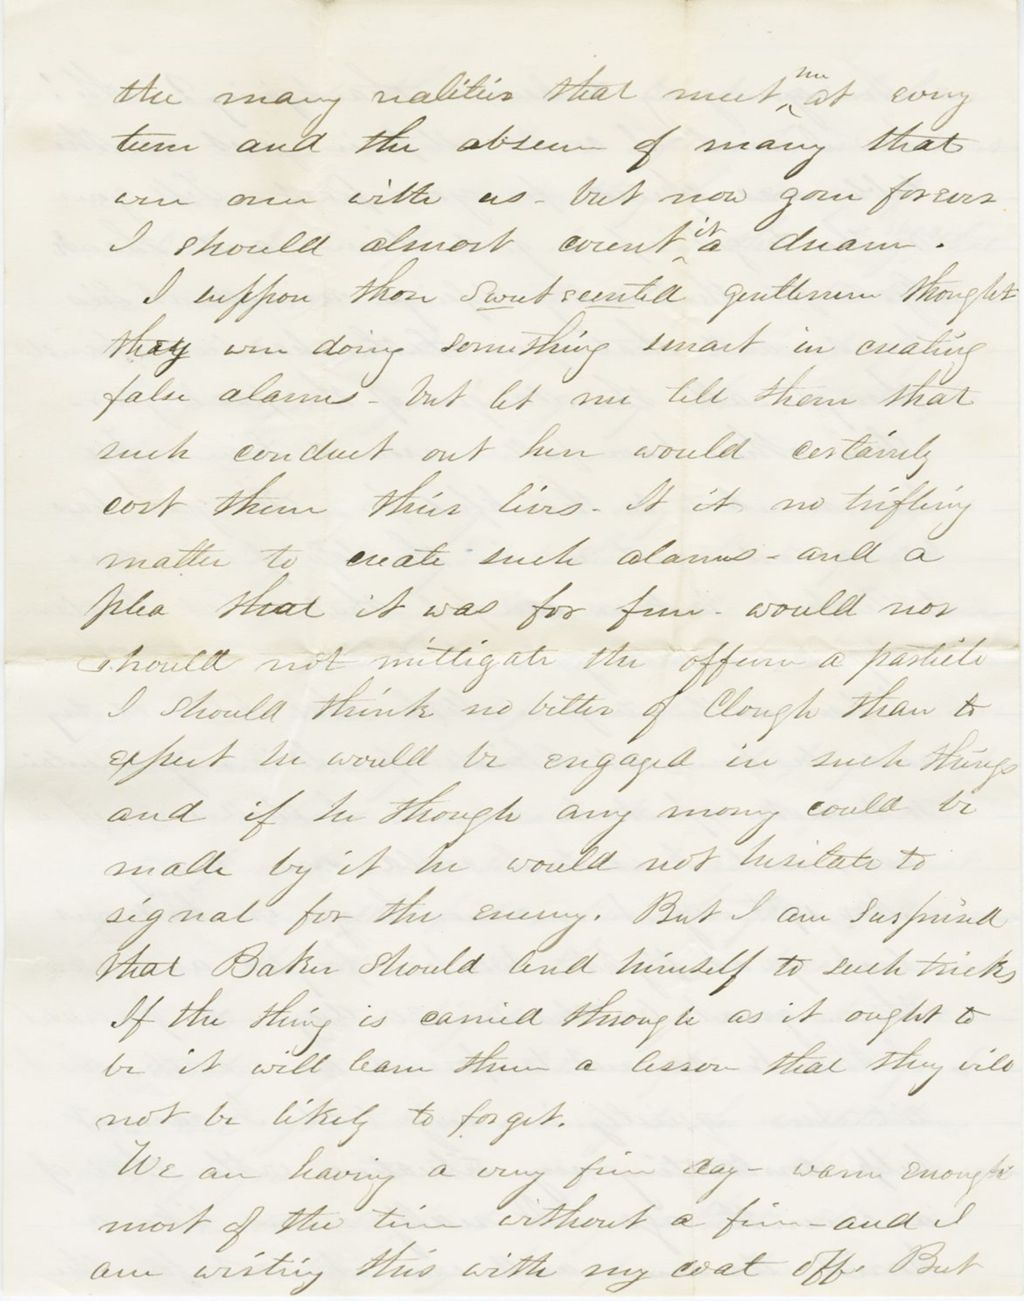 the many realities that meet me at every
turn and the absence of many that
were once with us - but now gone forever
I should almost count it a dream.
I suppose those sweet scented gentlemen thought
they were doing something smart in creating
false alarms - but let me tell them that
such conduct out here would certainly
cost them their lives - It it no trifling
matter to create such alarms - and a
plea that it was for fun - would not
should not mittigate the offense a particle
I should think no better of Clough than to
expect he would be engaged in such things
and if he though any money could be
made by it he would not hesitate to
signal for the enemy. But I am surprised
that Baker should lend himself to such tricks
If the thing is carried through as it ought to
be it will learn them a lesson that they will
not be likely to forget.
We are having a very fine day - warm enough
most of the time without a fire - and I
am writing this with my coat off. But